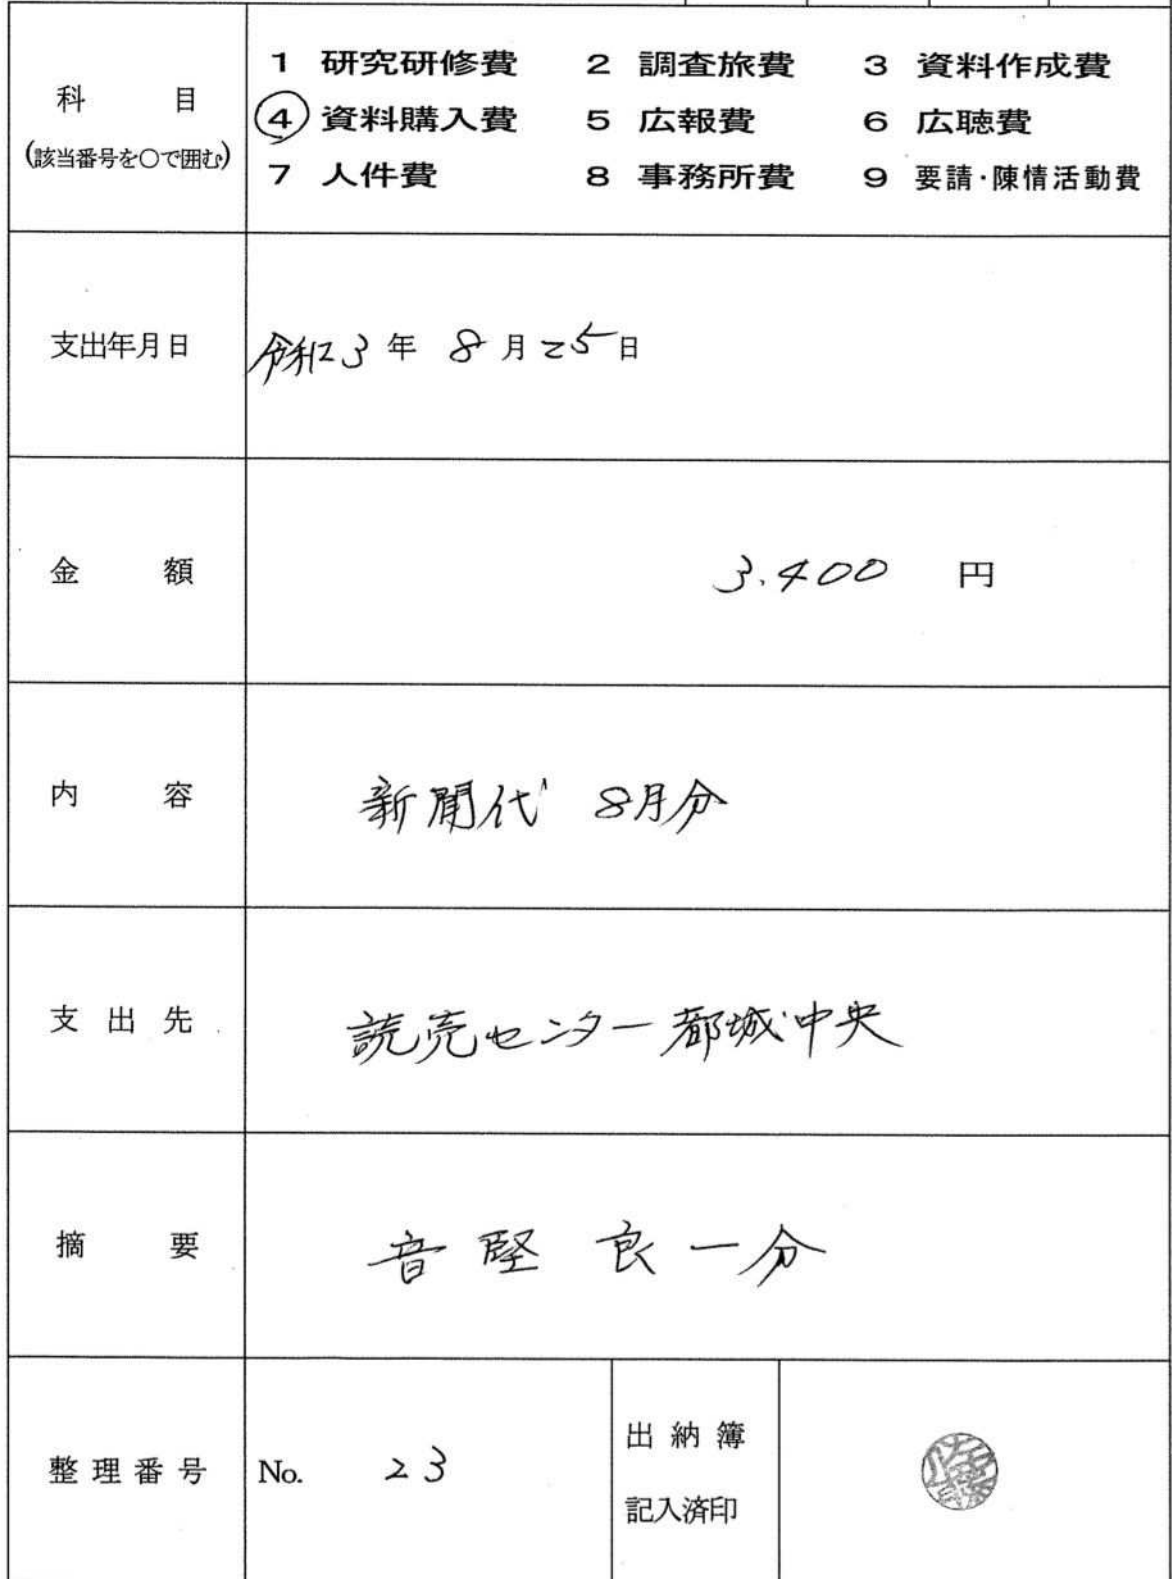 科目
(該当番号を○で囲む)
1 研究研修費 2 調査旅費 3 資料作成費
4 資料購入費 5 広報費 6 広聴費
7 人件費 8 事務所費 9 要請・陳情活動費
支出年月日 令和3年 8月25日
金額 3.400 円
内容 新聞代 8月分
支出先 読売センター都城中央
摘要 音堅 良一分
整理番号 No. 23
出納簿
記入済印